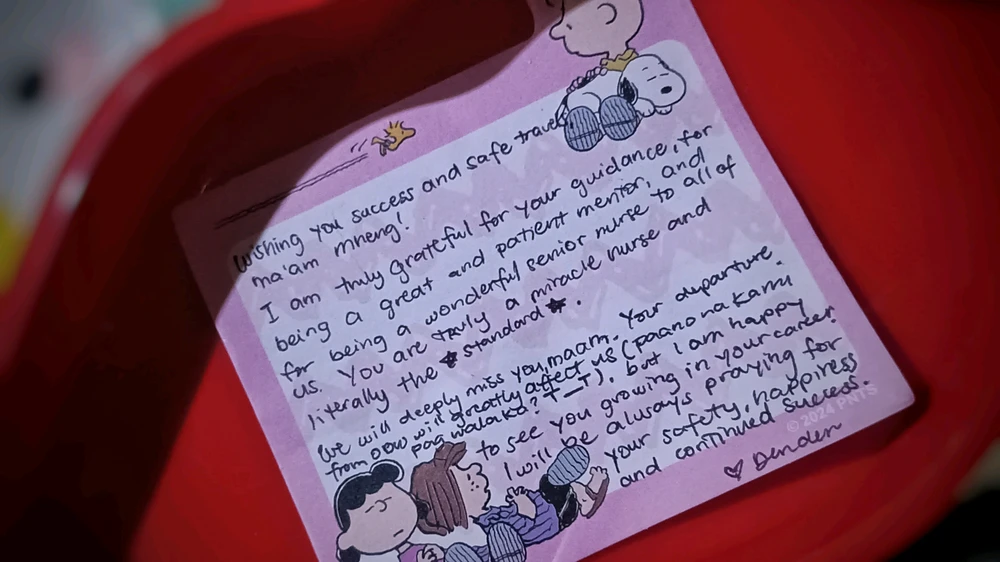 Wishing you success and safe travel
ma'am mheng!
I am truly grateful for your guidance, for
being a great and patient mentor, and
for being a wonderful senior nurse to all of
us. You are truly a miracle nurse and
literally the ★ standard ★.
We will deeply miss you, maam. Your departure
from OBW will greatly affect us (paano na kami
pag wala ka? T_T), but I am happy
to see you growing in your career.
I will be always praying for
your safety, happiness
and continued success.
♡ Denden
© 2024 PNTS